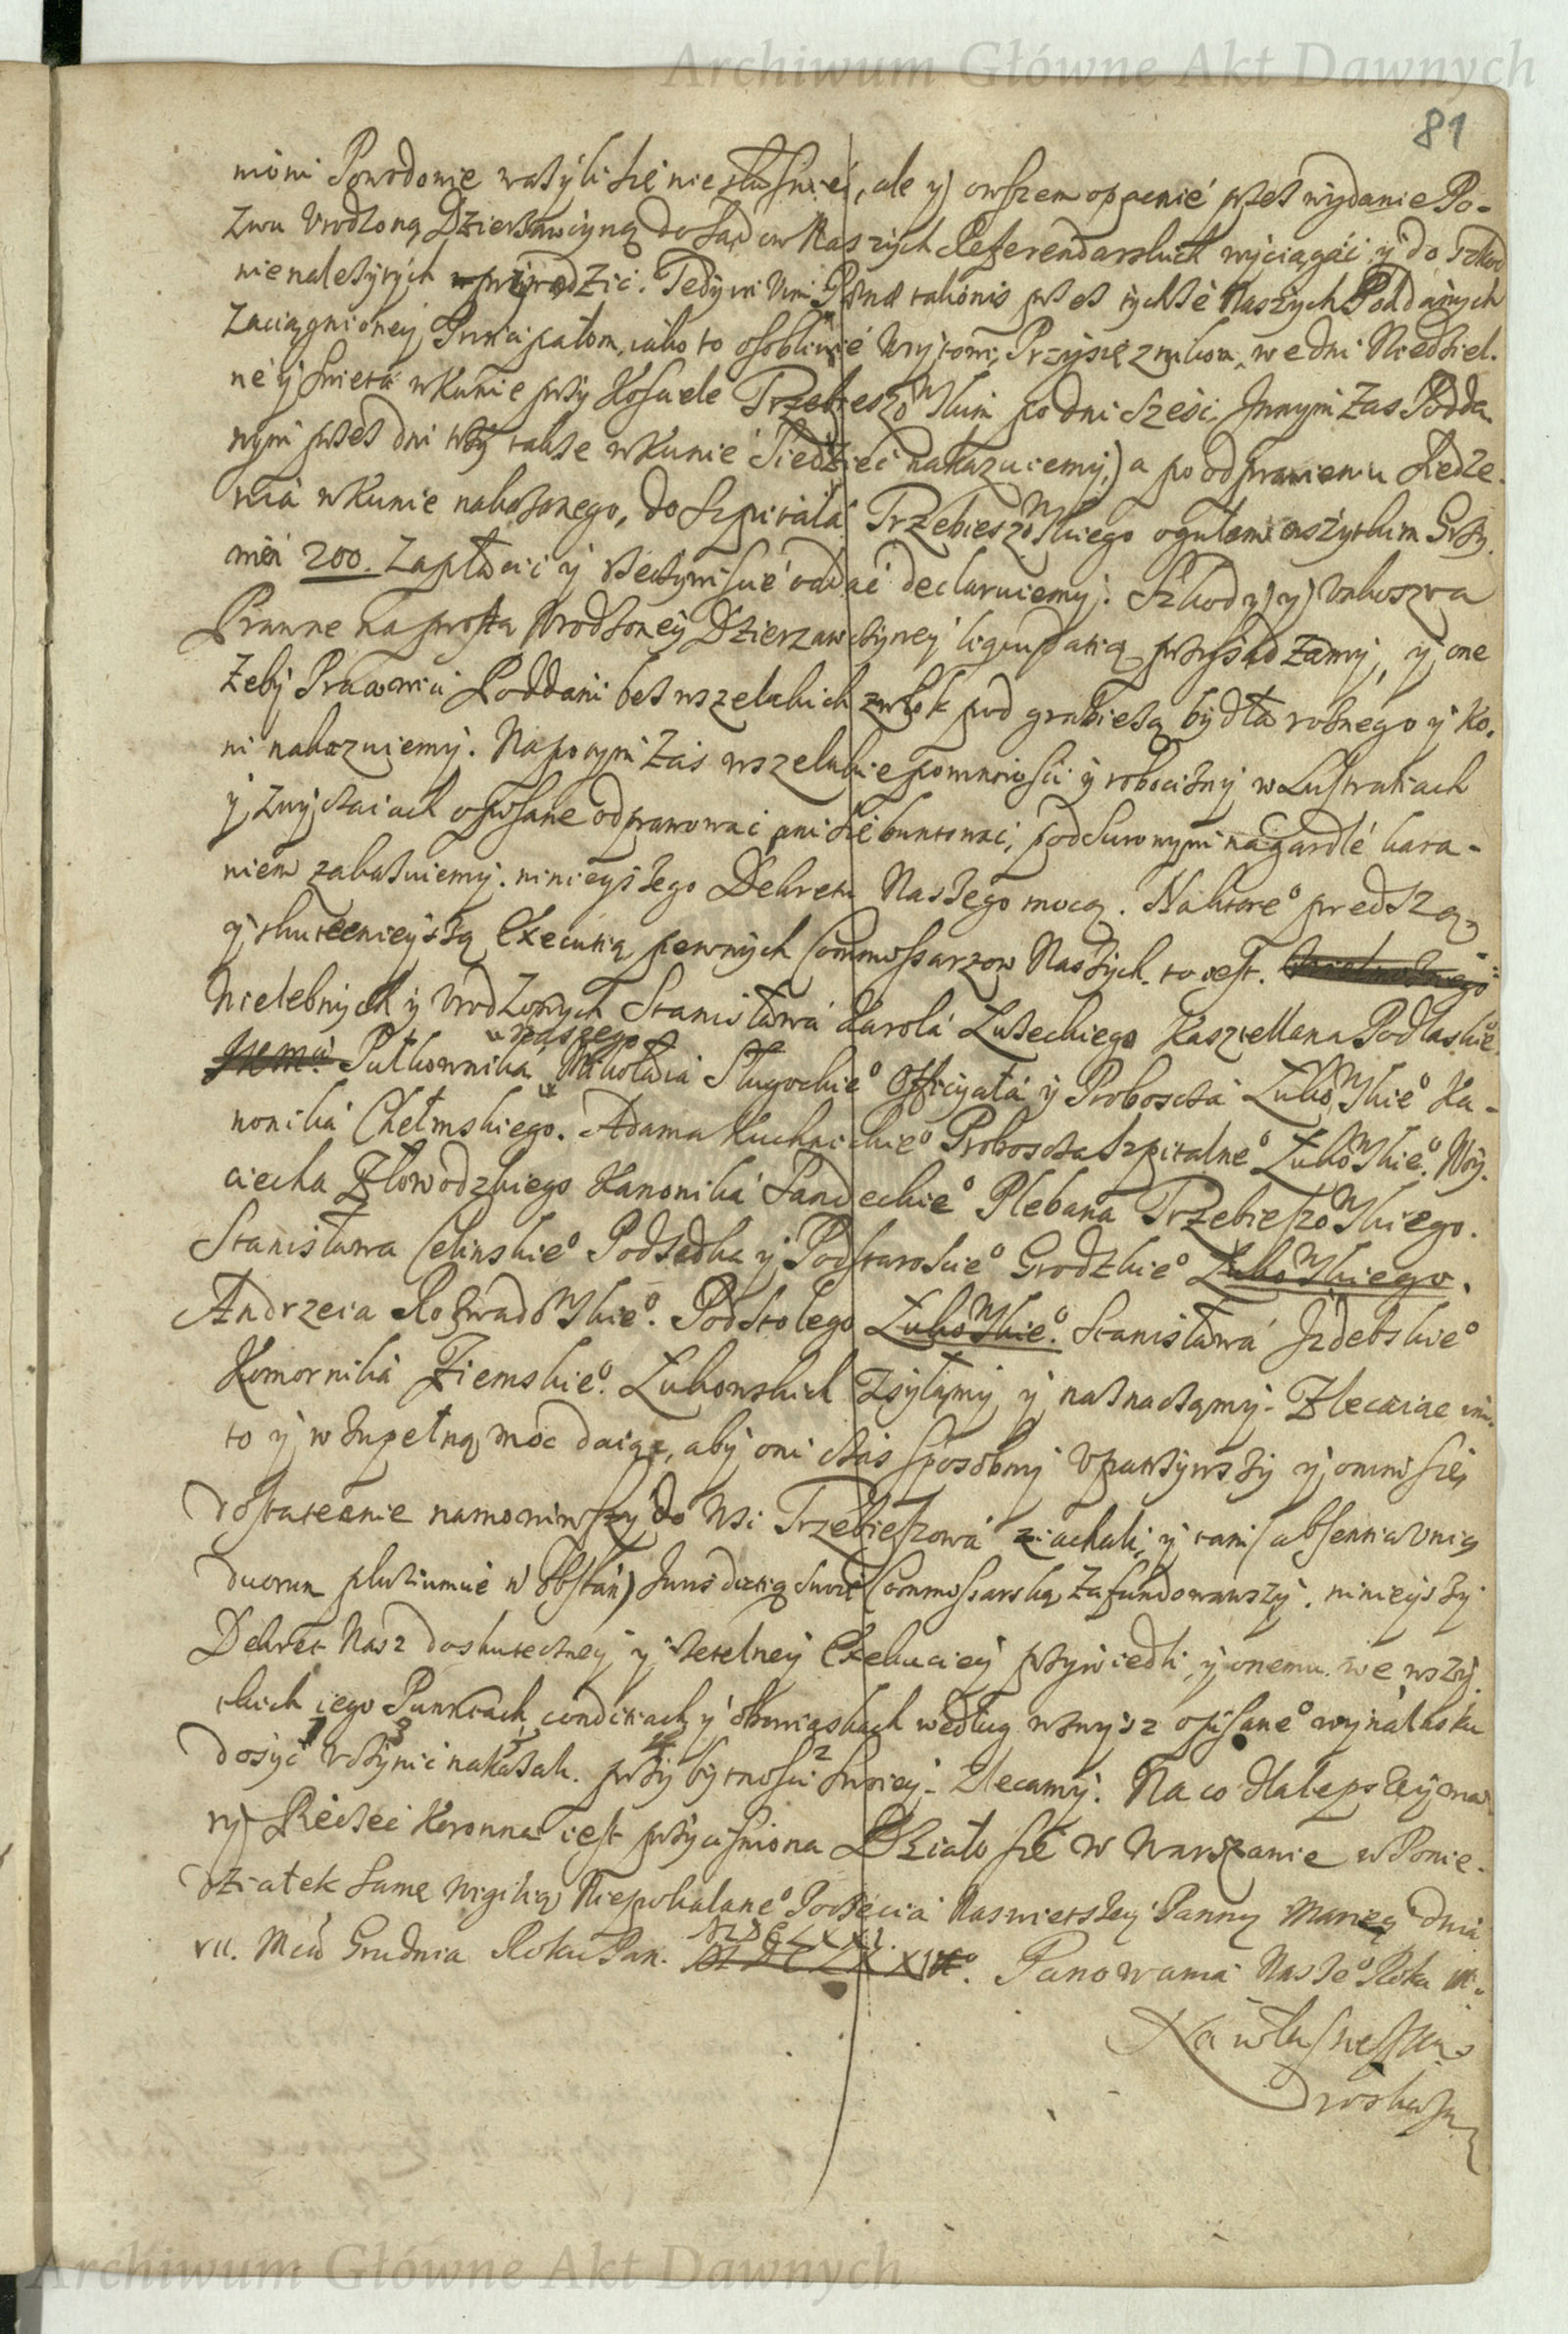 Archiwum Główne Akt Dawnych
81
mieni Powodowie ważyli się nie słusznie, ale y owszem opacnie przez wydanie Po-
zwu Vrodzoną Dzierżawczyną do Sądow Naszych Referendarskich wyciągać y do szkod
nienależytych przywodzic. Tedy in vim Pænæ talionis przez tychże Naszych Poddanych
Zaciągnioney Principałom, iako to osobliwie Woytowi, Przysiężnikom, we dni Niedziel-
ne y Swięta w Kunie przy Kosciele Trzebieszowskim po dni sześć, Innym zas Podda
nym przez dni trzy także w Kunie Siedzieć nakazuiemy, a po odprawieniu Siedze-
nia w Kunie nakazanego, do Szpitala Trzebieszowskiego ogułem wszytkim Grzy-
wien 200. Zapłacić y rzeczywiscie oddać declaruiemy. Szkody y Vkoszta
Prawne na prostą Vrodzoney Dzierzawczyney liquidatią przysądzamy, y one
Zeby Pracowici Poddani bez wszelakich zwłok pod grabieżą bydła rożnego y Ko-
ni nakazuiemy. Napotym Zas wszelakie powinności y robocizny w Lustratiach
y zwyczaiach opisane odprawowac, ani się buntowac, pod surowym na gardle kara-
niem zakazuiemy. ninieyszego Dekretu Naszego mocą. Na ktore° prędszą
y skutecznieyszą Executią pewnych Commissarzow Naszych. to iest.
Wielebnych y Vrodzonych Stanisława Karola Łużeckiego Kasztellana Podlaskie°
naszego
Pułkownika Mikołaia Sługockie° Officyała y Proboscza Łukowskie° Ka-
nonika Chełmskiego. Adama Kuchnickie° Proboscza Szpitalne° Łukowskie°. Woy-
ciecha Złowodzkiego Kanonika Sandeckie° Plebana Trzebieszowskiego.
Stanisława Celinskie° Podsędka y Podstaroscie° Grodzkie° Łukowskiego.
Andrzeia Rozwadowskie°. Podstolego Łukowskie°. Stanisława Jzdebskie°
Komornika Ziemskie°. Łukowskich Zsyłamy y naznaczamy. Zlecaiąc im
to y w zupełną moc daiąc, aby oni czas sposobny Vpatrzywszy y o nim się
dostatecznie namowiwszy do Wsi Trzebieszowa ziachali, y tam (absentia vnius
duorum pluriumue non obstan) Jurisdictią swoię Commissarską zafundowawszy. ninieyszy
Dekret Nasz do skuteczney y rzetelney Exekuciey przywiedli, y onemu we wszy-
stkich iego Punktach, conditiach y obowiązkach według wzwysz opisane° wynalasku
dosyć vczynic nakazali. przy bytności swoiey. Zlecamy. Na co dla lepszey wia
ry Pieczęć Koronna iest przycisniona Działo się w Warszawie w Ponie-
działek samę wigilią Niepokalane° Poczęcia Naswiętszey Panny Maryey dnia
VII. Mca Grudnia Roku Pan. MDCLXXVI. Panowania Nasze° Roku III.
Archiwum Główne Akt Dawnych